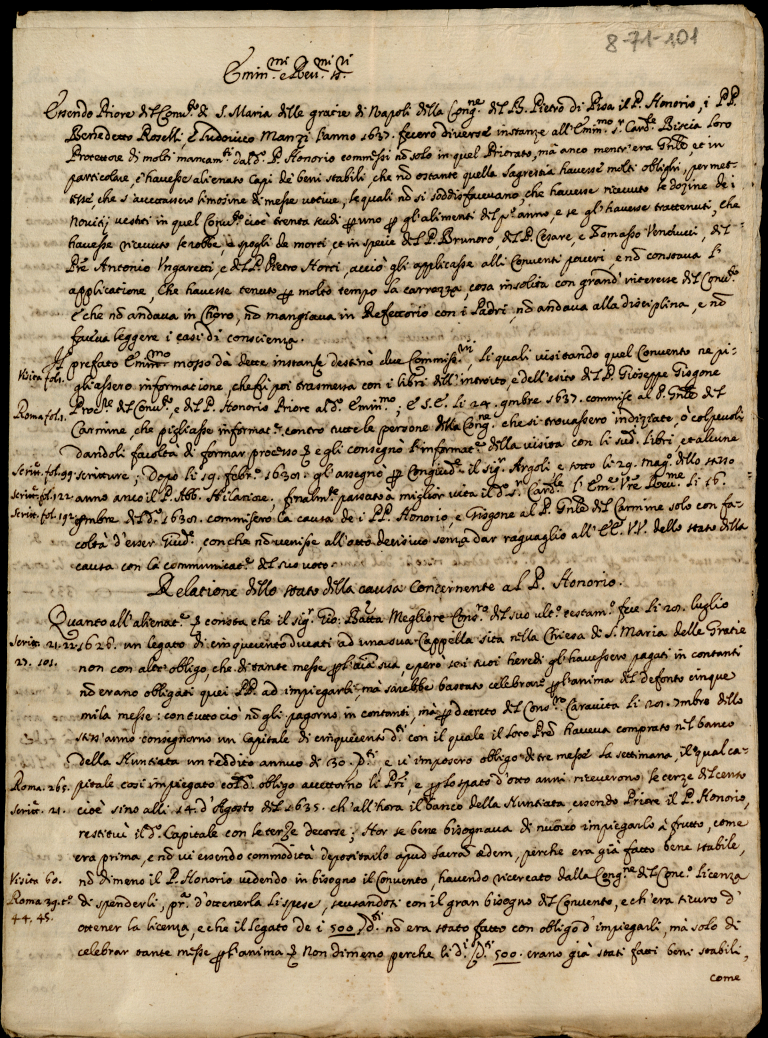 8-71-101
Emin.mi e Rev.mi SS.ri
Essendo Priore del Conv.to di S. Maria delle gratie di Napoli della Cong.ne del B. Pietro di Pisa il P. Honorio, i PP.
Benedetto Roselli, e Ludovico Manzi l'anno 1637. fecero diverse instanze all'Emin.mo S.r Card.le Biscia loro
Protettore di molti mancam.ti dal d.o P. Honorio commessi nō solo in quel Priorato, mà anco mentr'era Gn̄le et in
particolare, ch'havesse alienato Capi de beni stabili, che nō ostante quella Sagrestia havesse molti oblighi, permet-
tesse, che s'accettassero limosine di messe votive, le quali nō si soddisfacevano, che havesse ricevuto le dozine de i
Novitij vestiti in quel Conv.to cioè trenta scudi per uno per gl'alimenti del p.o anno, e se gl'havesse trattenuti, che
havesse ricevuto le robbe, e spogli de morti, et in specie del P. Brunoro, del P. Cesare, e Tomasso Venducci, del
P̄re Antonio Ungaretti, e del P. Pietro Horti, acciò gli applicasse alli Conventi poveri e nō constava l'
applicatione, che havesse tenuto per molto tempo la carrozza, cosa insolita con grand'interesse del Conv.to
E che nō andava in Choro, nō mangiava in Refettorio con i Padri, nō andava alla disciplina, e nō
faceva leggere i casi di conscienza.
Il prefato Emin.mo mosso dà dette instanze destinò due Commiss.rij, li quali visitando quel Convento ne pi-
Visita fol. 1.
gliassero informatione, che fù poi trasmessa con i libri dell'introito, e dell'esito del P. Gioseppe Gisgone
Roma fol. 1.
Proc.re del Conv.to, e del P. Honorio Priore al d.o Emin.mo; E S. E. li 24. 9mbre 1637. commise al P. Gn̄le del
Carmine, che pigliasse informat.e contro tutte le persone della Cong.ne che si trovassero inditiate, ò colpevoli
dandoli facoltà di formar processo & e gli consegnò l'informat.e della visita con li sud.i libri, et alcune
Scritt. fol. 99.
scritture; Dopo li 19. febr.o 1638. gl'assegnò per Congiud.e il sig.r Argoli e sotto li 29. mag.o dello stesso
Scritt. fol. 122.
anno anco il P. Abb. Hilarione, finalm.te passato à miglior vita il d.o S.r Card.le l'Em.e V̄re Rev.me li 16.
Scritt. fol. 192.
9mbre del d.o 1638. commisero la causa de i PP. Honorio, e Gisgone al P. Gn̄le del Carmine solo con fa-
coltà d'esser Giud.e, con che nō venisse all'atto decisivo senza dar raguaglio all'EE. VV. dello stato della
causa con la communicat.e del suo voto.
Relatione dello stato della causa Concernente al P. Honorio.
Quanto all'alienat.e & consta che il sig.r Gio: Batta Megliore Cons.ro del suo ult.o testam.o fece li 28. luglio
Scritt. 21. 22.
1626. un legato di cinquecento ducati ad una sua Cappella sita nella Chiesa di S. Maria delle Gratie
27. 101.
non con altro obligo, che di tante messe per l'anīa sua, e però se i suoi heredi gl'havessero pagati in contanti
nō erano obligati quei PP. ad impiegarli, mà sarebbe bastato celebrare per l'anima del defonto cinque
mila messe: con tutto ciò nō gli pagorno in contanti, mà per decreto del Cons.ro Caravita li 20. 7mbre dello
stess'anno consegnorno un Capitale di cinquecento d.ti con il quale il loro P̄re haveva comprato nel banco
della Nuntiata un reddito annuo di 30. d.ti e vi imposero obligo di tre messe la settimana, il qual ca-
Roma. 265.
pitale cosi impiegato col d.o obligo accettorno li P̄ri, e per lo spatio d'otto anni riceverono le terze del censo
Scritt. 21.
cioè sino alli 14. d'Agosto del 1635. ch'all'hora il banco della Nuntiata, essendo Priore il P. Honorio,
restitui il d.o Capitale con le terze decorse; Hor se bene bisognava di nuovo impiegarlo à frutto, come
era prima, e nō vi essendo commodità depositarlo apud sacram ædem, perche era già fatto bene stabile,
Visita 60.
nō dimeno il P. Honorio vedendo in bisogno il Convento, havendo ricercato dalla Cong.ne del Conc.o licenza
Roma 29. t.o
di spenderli, p.a d'ottenerla li spese, scusandosi con il gran bisogno del Convento, e ch'era sicuro d'
44. 45.
ottener la licenza, e che il legato de i 500 d.ti nō era stato fatto con obligo d'impiegarli, mà solo di
celebrar tante messe per l'anima & Non dimeno perche li d.i d.ti 500. erano già stati fatti beni stabili,
come